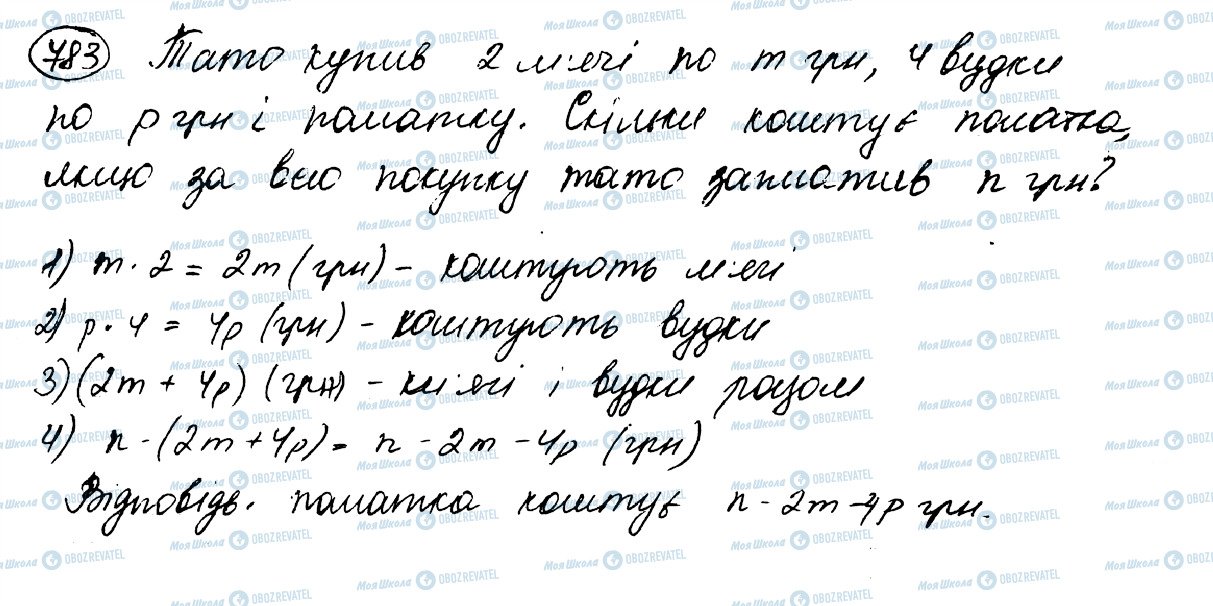 783 Тато купив 2 м'ячі по m грн, 4 вудки
по p грн і палатку. Скільки коштує палатка,
якщо за всю покупку тато заплатив n грн?
1) m · 2 = 2m (грн) - коштують м'ячі
2) p · 4 = 4p (грн) - коштують вудки
3) (2m + 4p) (грн) - м'ячі і вудки разом
4) n - (2m + 4p) = n - 2m - 4p (грн)
Відповідь. палатка коштує n - 2m - 4p грн.